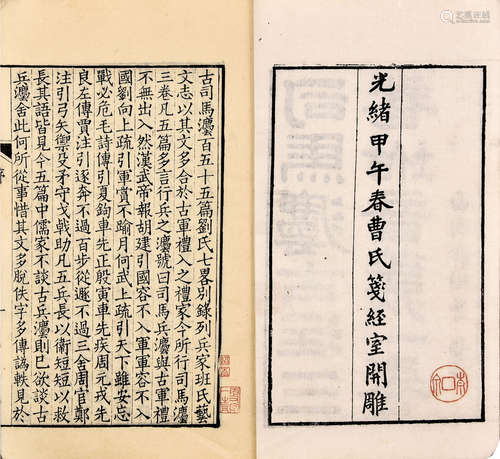 光緒甲午春曹氏箋經室開雕
古司馬灋百五十五篇劉氏七畧別錄列兵家班氏藝
文志以其文多合於古軍禮入之禮家今所行司馬灋
三卷凡五篇多言行兵之灋號曰司馬兵灋與古軍禮
不無出入然漢武帝報胡建引國容不入軍軍容不入
國劉向上疏引軍賞不踰月何武上疏引天下雖安忘
戰必危毛詩傳引夏鉤車先正殷寅車先疾周元戎先
良左傳賈注引逐奔不過百步從遯不過三舍周官鄭
注引弓矢禦殳矛守戈戟助凡五兵長以衞短短以救
長其語皆見今五篇中儒家不談古兵灋則已欲談古
兵灋舍此何所從事惜其文多脫佚字多傳譌軼見於